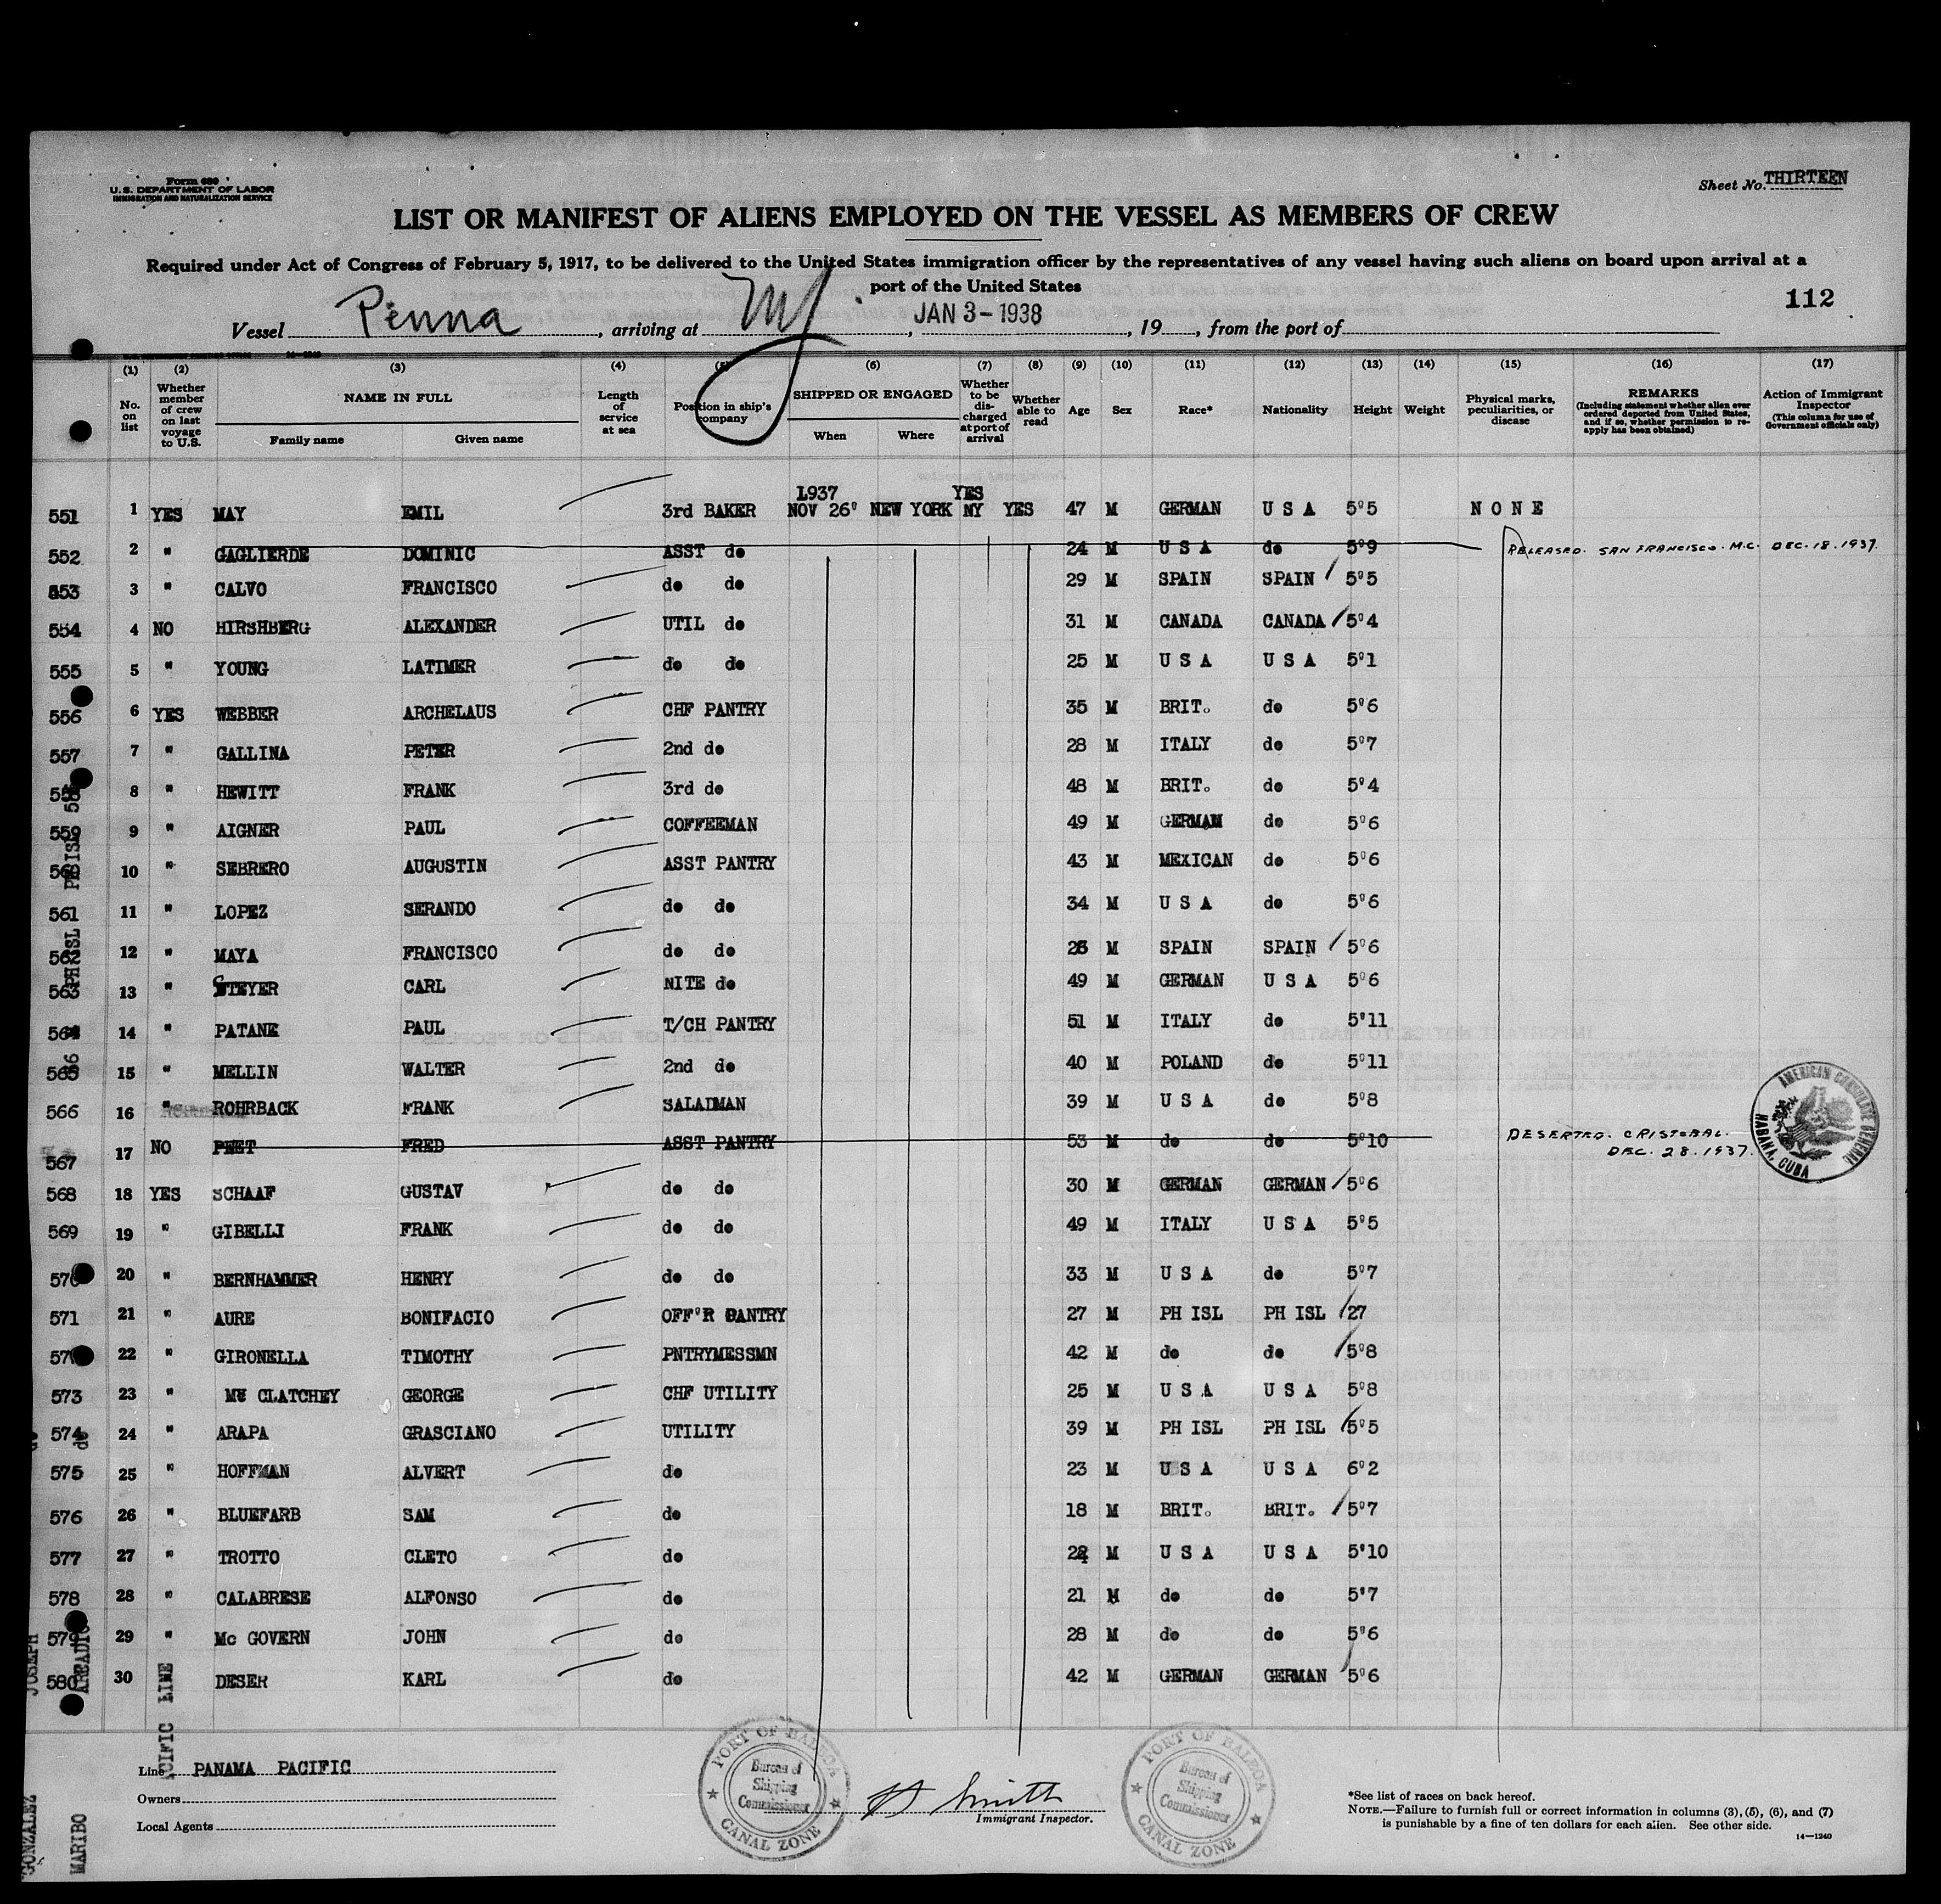 Form 680
U.S. DEPARTMENT OF LABOR
IMMIGRATION AND NATURALIZATION SERVICE
Sheet No. THIRTEEN
LIST OR MANIFEST OF ALIENS EMPLOYED ON THE VESSEL AS MEMBERS OF CREW
Required under Act of Congress of February 5, 1917, to be delivered to the United States immigration officer by the representatives of any vessel having such aliens on board upon arrival at a
port of the United States
112
Vessel Penna, arriving at NY, JAN 3-1938, 19, from the port of
(1) (2) (3) (4) (5) (6) (7) (8) (9) (10) (11) (12) (13) (14) (15) (16) (17)
No. on list
Whether member of crew on last voyage to U.S.
NAME IN FULL
Family name Given name
Length of service at sea
Position in ship's company
SHIPPED OR ENGAGED
When Where
Whether to be discharged at port of arrival
Whether able to read
Age Sex Race* Nationality Height Weight
Physical marks, peculiarities, or disease
REMARKS
(Including statement whether alien ever ordered deported from United States, and if so, whether permission to re-apply has been obtained)
Action of Immigrant Inspector
(This column for use of Government officials only)
1937 YES
551 1 YES MAY EMIL 3rd BAKER NOV 26' NEW YORK NY YES 47 M GERMAN U S A 5'5 N O N E
552 2 " GAGLIERDE DOMINIC ASST do 24 M U S A do 5'9 RELEASED. SAN FRANCISCO. M.C. DEC. 18. 1937.
553 3 " CALVO FRANCISCO do do 29 M SPAIN SPAIN 5'5
554 4 NO HIRSHBERG ALEXANDER UTIL do 31 M CANADA CANADA 5'4
555 5 " YOUNG LATIMER do do 25 M U S A U S A 5'1
556 6 YES WEBBER ARCHELAUS CHF PANTRY 35 M BRIT. do 5'6
557 7 " GALLINA PETER 2nd do 28 M ITALY do 5'7
558 8 " HEWITT FRANK 3rd do 48 M BRIT. do 5'4
559 9 " AIGNER PAUL COFFEEMAN 49 M GERMAN do 5'6
560 10 " SEBRERO AUGUSTIN ASST PANTRY 43 M MEXICAN do 5'6
561 11 " LOPEZ SERANDO do do 34 M U S A do 5'6
562 12 " MAYA FRANCISCO do do M SPAIN SPAIN 5'6
563 13 " STEYER CARL NITE do 49 M GERMAN U S A 5'6
564 14 " PATANE PAUL T/CH PANTRY 51 M ITALY do 5'11
565 15 " MELLIN WALTER 2nd do 40 M POLAND do 5'11
566 16 " ROHRBACK FRANK SALADMAN 39 M U S A do 5'8
567 17 NO PEET FRED ASST PANTRY 53 M do do 5'10 DESERTED. CRISTOBAL.
DEC. 28. 1937.
AMERICAN CONSULATE GENERAL HABANA, CUBA
568 18 YES SCHAAF GUSTAV do do 30 M GERMAN GERMAN 5'6
569 19 " GIBELLI FRANK do do 49 M ITALY U S A 5'5
570 20 " BERNHAMMER HENRY do do 33 M U S A do 5'7
571 21 " AURE BONIFACIO OFF'R PANTRY 27 M PH ISL PH ISL 27
57 22 " GIRONELLA TIMOTHY PNTRYMESSMN 42 M do do 5'8
573 23 " Mc CLATCHEY GEORGE CHF UTILITY 25 M U S A U S A 5'8
574 24 " ARAPA GRASCIANO UTILITY 39 M PH ISL PH ISL 5'5
575 25 " HOFFMAN ALVERT do 23 M U S A U S A 6'2
576 26 " BLUEFARB SAM do 18 M BRIT. BRIT. 5'7
577 27 " TROTTO CLETO do M U S A U S A 5'10
578 28 " CALABRESE ALFONSO do 21 M do do 5'7
579 29 " Mc GOVERN JOHN do 28 M do do 5'6
580 30 DESER KARL do 42 M GERMAN GERMAN 5'6
JOSEPH
ARCADIO
GONZALEZ
MARIBO
CIFIC LINE
Line PANAMA PACIFIC
Owners
Local Agents
PORT OF BALBOA
Bureau of Shipping Commissioner
CANAL ZONE
Smith
Immigrant Inspector.
PORT OF BALBOA
Bureau of Shipping Commissioner
CANAL ZONE
*See list of races on back hereof.
NOTE.—Failure to furnish full or correct information in columns (3), (5), (6), and (7)
is punishable by a fine of ten dollars for each alien. See other side.
14—1240